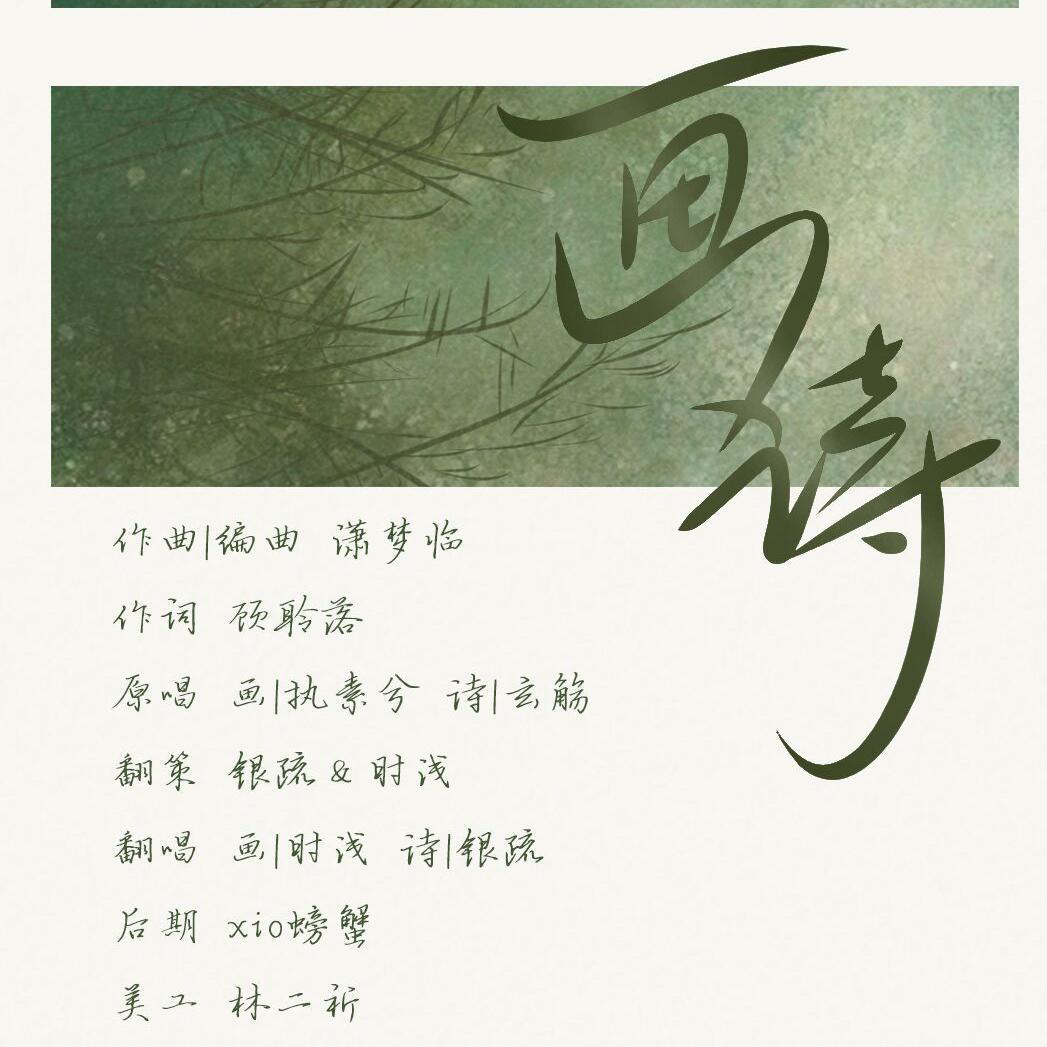 画诗
作曲|编曲 潇梦临
作词 顾聆落
原唱 画|执素兮 诗|玄觞
翻策 银疏 & 时浅
翻唱 画|时浅 诗|银疏
后期 xio螃蟹
美工 林二祈